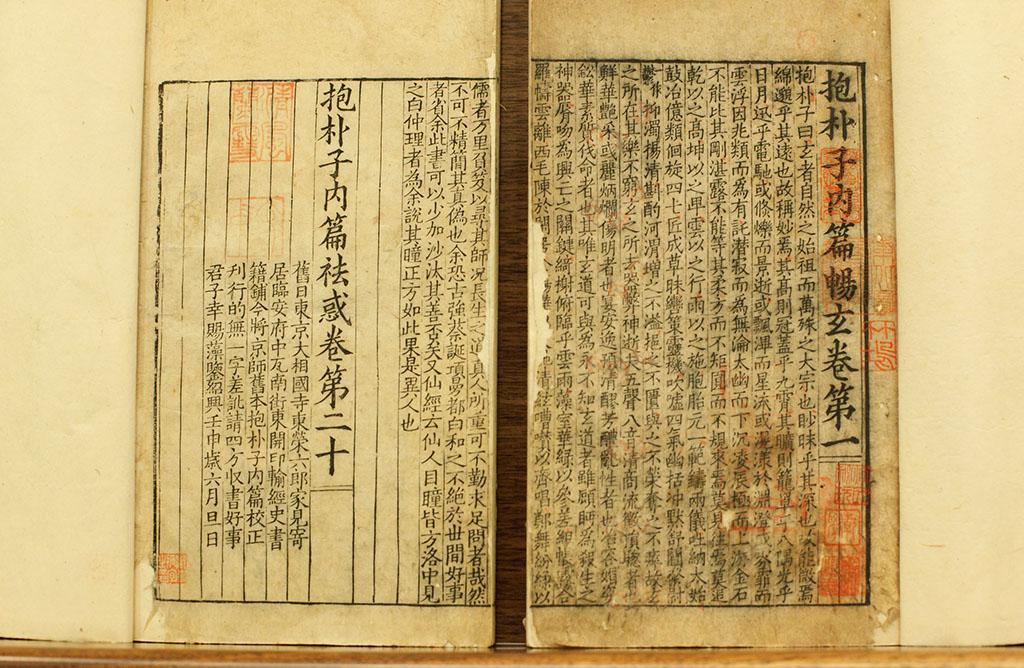 抱朴子內篇暢玄卷第一
抱朴子曰玄者自然之始祖而萬殊之大宗也眇昧乎其深也故微焉
綿邈乎其遠也故稱妙焉其高則冠蓋乎九霄其曠則籠罩乎八隅光乎
日月迅乎電馳或倏爍而景逝或飄滭而星流或滉漾於淵澄或雰霏而
雲浮因兆類而為有託潛寂而為無淪太幽而下沉凌辰極而上游金石
不能比其剛湛露不能等其柔方而不矩圓而不規來焉莫見往焉莫追
乾以之高坤以之卑雲以之行雨以之施胞胎元一範鑄兩儀吐納太始
鼓冶億類佪旋四七匠成草昧轡策靈機吹噓四氣幽括沖默舒闡粲尉
抑濁揚清斟酌河渭增之不溢挹之不匱與之不榮奪之不瘁故玄
之所在其樂不窮玄之所去器弊神逝夫五聲八音清商流徵損聰者也
鮮華艷采彧麗炳爛傷明者也宴安逸豫清醪芳醴亂性者也冶容媚姿
鈆華素質伐命者也其唯玄道可與為永不知玄道者雖顧眄為殺生之
神器脣吻為興亡之關鍵綺榭俯臨乎雲雨藻室華綠以參差組帳霧合
羅幬雲離西毛陳於閒房清絃嘈囋以齊唱鄭舞紛紜以
儒者万里負笈以尋其師況長生之道真人所重可不勤求足問者哉然
不可不精簡其真偽也余恐古強蔡誕項曼都白和之不絕於世間好事
者省余此書可以少加沙汰其善否矣又仙經云仙人目瞳皆方洛中見
之白仲理者為余說其瞳正方如此果是異人也
抱朴子內篇袪惑卷第二十
舊日東京大相國寺東榮六郎家見寄
居臨安府中瓦南街東開印輸經史書
籍鋪今將京師舊本抱朴子內篇校正
刊行的無一字差訛請四方收書好事
君子幸賜藻鑒紹興壬申歲六月旦日